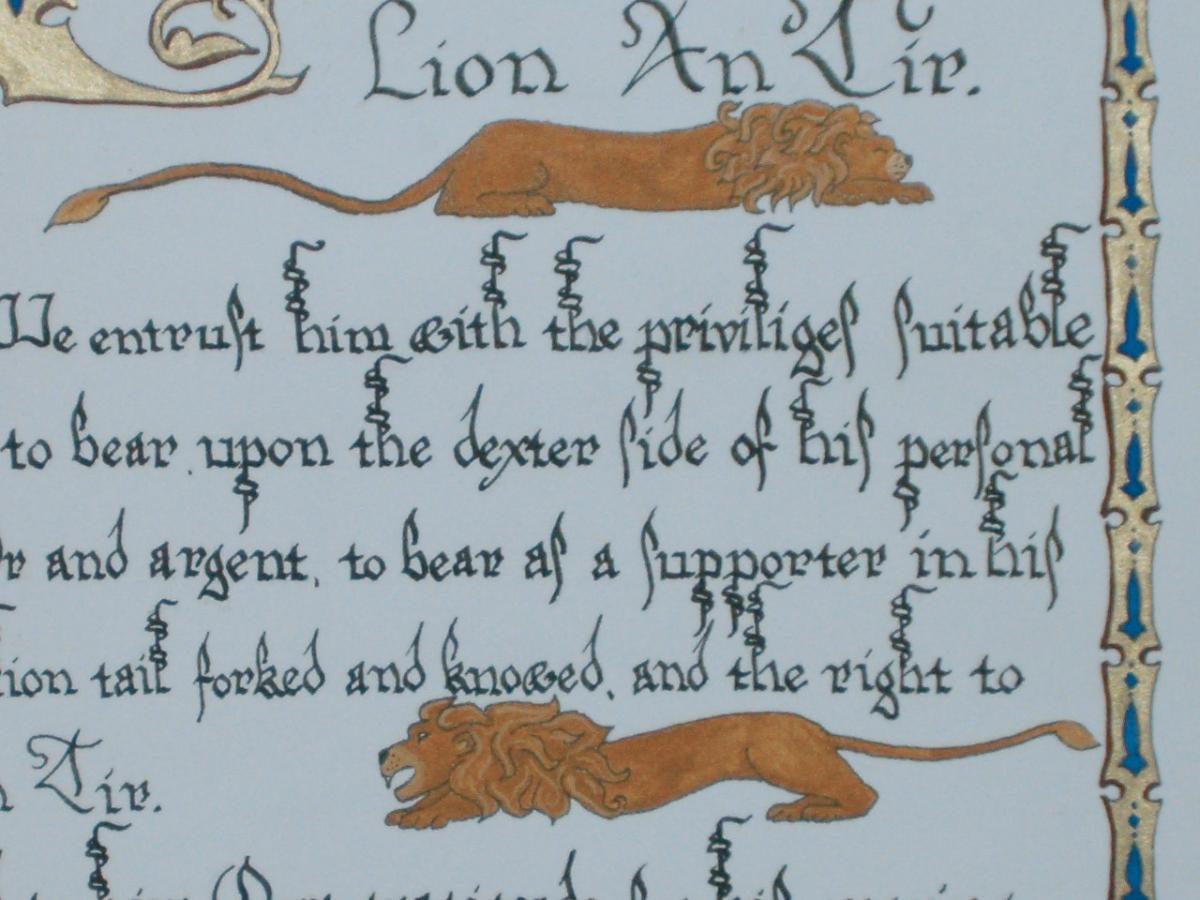 Lion An Tir.
We entruſt him with the priviligeſ ſuitable
to bear upon the dexter ſide of hiſ perſonal
and argent, to bear aſ a ſupporter in hiſ
tail forked and knowed, and the right to
Tir.